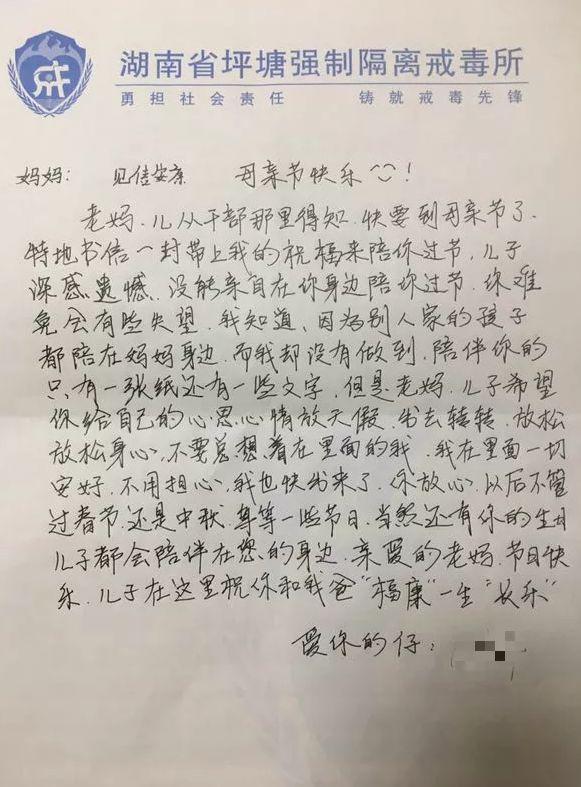 湖南省坪塘强制隔离戒毒所
勇担社会责任 铸就戒毒先锋
妈妈： 见信安康 母亲节快乐！
老妈．儿从干部那里得知．快要到母亲节了．
特地书信一封带上我的祝福来陪你过节．儿子
深感遗憾．没能亲自在你身边陪你过节．你难
免会有些失望．我知道，因为别人家的孩子
都陪在妈妈身边．而我却没有做到．陪伴你的
只有一张纸还有一些文字，但是老妈．儿子希望
你给自己的心思心情放天假．出去转转．放松
放松身心，不要总想着在里面的我．我在里面一切
安好．不用担心．我也快出来了．你放心．以后不管
过春节．还是中秋．等一些节日．当然还有你的生日
儿子都会陪伴在您的身边．亲爱的老妈．节日快
乐．儿子在这里祝你和我爸“福康”一生“长乐”
爱你的仔：